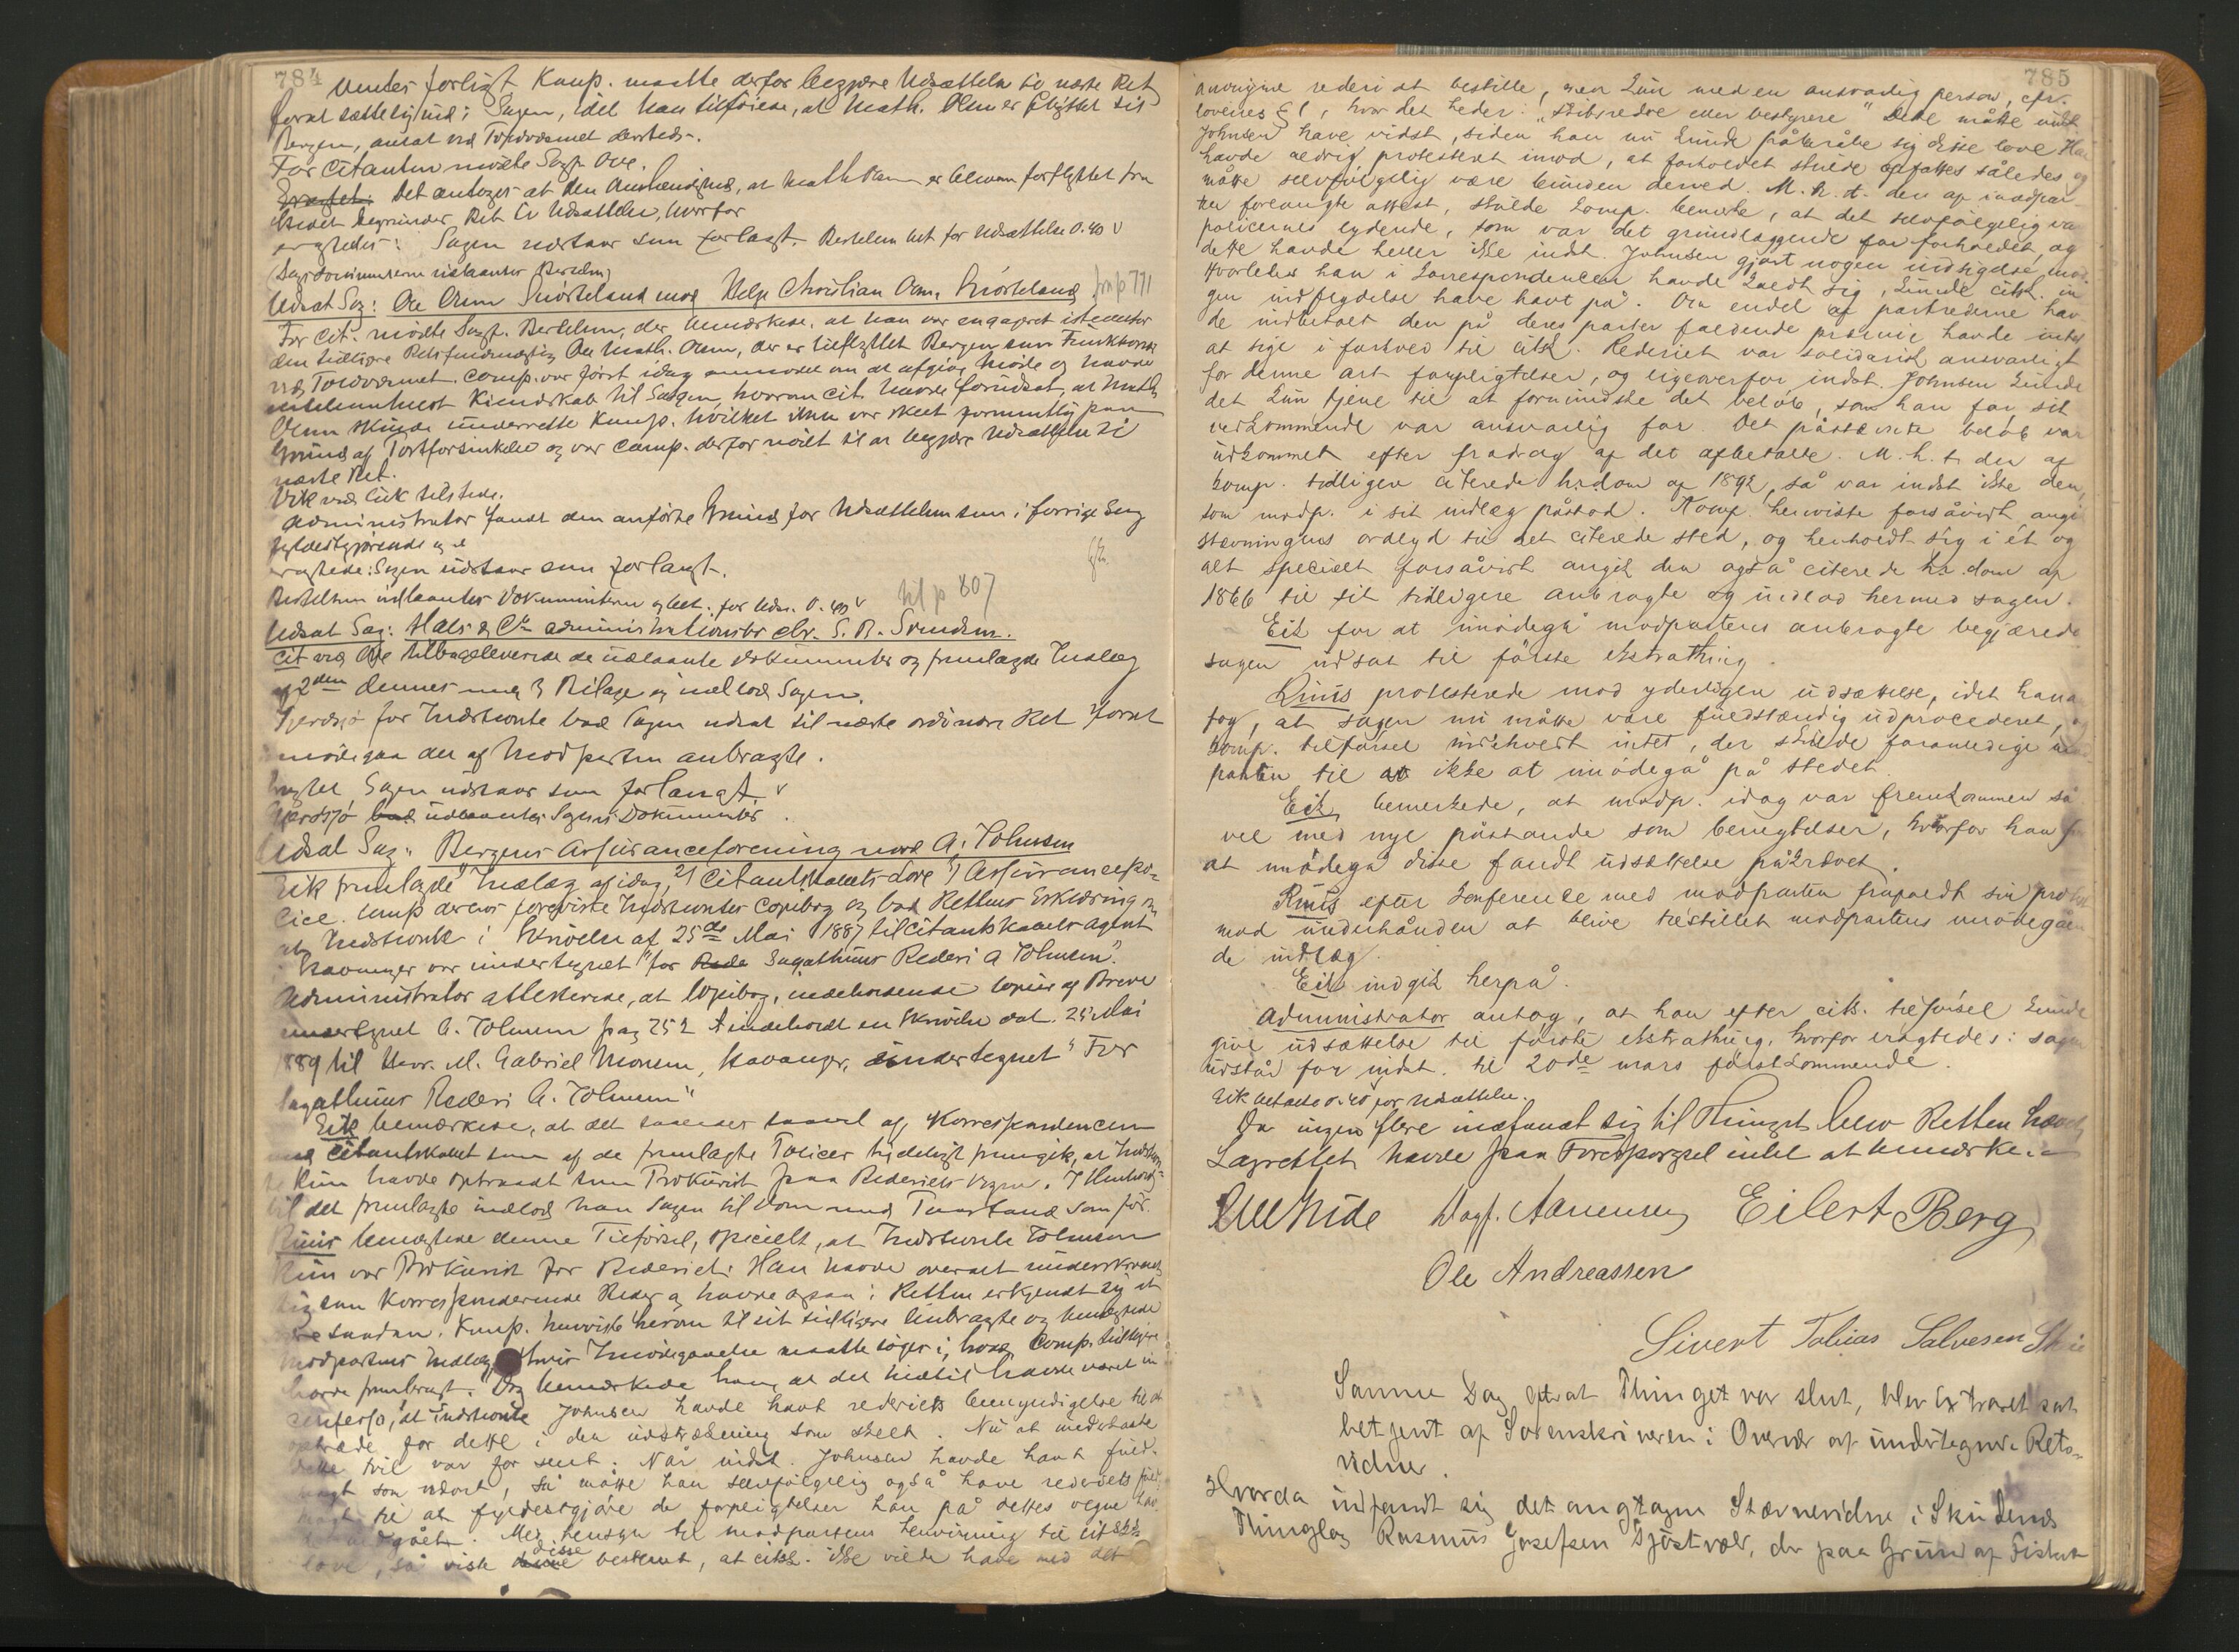 784
forligt Komp. maatte derfor begjære Udsættelse til næste Ret
Sagen, idet han tilføiede, at Math. Olsen er flyttet til
Bergen, ansat ved Toldvæsenet dersteds.
For Citanten mødte Sagf. Ove.
Eragtet: Det antoges at den Omstændighed, at Math Olsen er bleven forflyttet fra
Stedet begrunder Ret til Udsættelse, hvorfor
eragtedes: Sagen udstaar som forlangt. Bertelsen bet for Udsættelse 0.40
Sagsdocumenterne udlaantes Bertelsen
Udsat Sag: Ole Olsen Snörteland mod Helge Christian Olsen Snörteland fra p 771
For Cit. mødte Sagf. Bertelsen, der bemærkede, at han var engageret istedetfor
den tidligere Retsfuldmægtig Ole Math. Olsen, der er tilflyttet Bergen som Funktionær
ved Toldvæsenet. Comp. var først idag anmodet om at afgive Møde og havde
intet Kjendskab til Sagen, hvorom Cit. havde forudsat, at Math
Olsen skulde underrette Komp. hvilket ikke var skeet formentlig paa
Grund af Postforsinkelse og var Comp. derfor nødt til at begjære Udsættelse til
næste Ret.
Eik var ikke tilstede.
Administrator fandt den anførte Grund for Udsættelsen som i forrige Sag
fyldestgjørende og
eragtede: Sagen udstaar som forlangt.
Bertelsen udlaantes Dokumenterne og bet. for Uds. 0.40 til p 807
Udsat Sag: Hals & Co administrationsbo ctr. S. R. Svendsen.
Cit ved Ove tilbageleverede de udlaante Dokumenter og fremlagde Indlæg
af 2den dennes med 3 Bilage og indlod Sagen.
Gjerdsjø for Indstevnte bad Sagen udsat til næste ordinære Ret forat
imødegaa det af Modparten anbragte.
Eragtet Sagen udstaar som forlangt.
Gjerdsjø udlaantes Sagens Dokumenter.
Udsat Sag: Bergens Assuranceforening mod A. Johnsen
Eik fremlagde Indlæg af idag, 2) Citantskabets Love 3) Assurancepo-
lice. Comp derhos foreviste Indstevntes Copibog og bad Rettens Erklæring om
at Indstevnte i Skrivelse af 25de Mai 1887 til Citantskabets agent
i Stavanger var undertegnet "for Sagathuns Rederi A Johnsen".
Administrator attesterede, at Copibog, indeholdende copier af Breve
undertegnet A. Johnsen pag 252 indeholdt en Skrivelse dat. 25 Mai
1889 til Herr. M. Gabriel Monsen, Stavanger, undertegnet "For
Sagathuns Rederi A. Johnsen"
Eik bemærkede, at det saaledes saavel af Korrespondencen
med Citantskabet som af de fremlagte Policer tydeligt fremgik, at Indstevn
te kun havde optraadt som Prokurist paa Rederiets Vegne. I Henhold
til det fremlagte indlod han Sagen til Dom med Paastand som før.
Ruus benægtede denne Tilførsel, specielt, at Indstevnte Johnsen
kun var Prokurist for Rederiet. Han havde overalt underskrevet
sig som Korresponderende Reder og havde ogsaa i Retten erkjendt sig at
være saadan. Komp. henviste herom til sit tidligere Anbragte og benægtede
Modpartens Indlæg hvis Imødegaaelse maatte søges i, hvad Comp. tidligere
havde frembragt. Dog bemærkede han, at det hidtil havde været in
confesso, at Indstevnte Johnsen havde havt rederiets bemyndigelse til at
optræde for dette i den udstrækning som skeet. Nu at undertaste
dette tvil var for sent. Når indst. Johnsen havde havt fuld-
magt som nævnt, så måtte han selvfølgelig også have rederiets fuld-
magt til at fyldestgjøre de forpligtelser han på dettes vegne hav-
de indgået. Med hensyn til modpartens henvisning til citsk's
love, så viste disse bestemt, at citsk. ikke vilde have med det
785
anonyme rederi at bestille, men kun med en ansvarlig person, cfr.
lovenes § 1, hvor det heder: "skibsredre eller bestyrere" Dette måtte indst.
Johnsen have vidst, siden han nu kunde påberåbe sig disse love. Han
havde aldrig protesteret imod, at forholdet skulde opfattes således og
måtte selvfølgelig være bunden derved. M.h.t. den af modpar-
ten forelagte attest, skulde komp. bemerke, at det selvfølgelig var
policernes lydende, som var det grundlæggende for forholdet, og
dette havde heller ikke indst. Johnsen gjort nogen indsigelse mod.
Hvorledes han i korrespondencen havde kaldt sig, kunde citsk. in
gen indflydelse have havt på. Om endel af partrederne hav
de indbetalt den på deres parter faldende præmie havde intet
at sige i forhold til citsk. Rederiet var solidarisk ansvarligt
for denne art forpligtelser, og ligeoverfor indst. Johnsen kunde
det kun tjene til at formindske det beløb, som han for sit
vedkommende var ansvarlig for. Det påstævnte beløb var
udkommet efter fradrag af det afbetalte. M.h.t. den af
komp. tidligere citerede h.r.dom af 1892, så var indst ikke den,
som modp. i sit indlæg påstod. Komp. henviste forsåvidt angik
stævningens ordlyd til det citerede sted, og henholdt sig i ét og
alt specielt forsåvidt angik den også citerede h.r.dom af
1866 til sit tidligere anbragte og indlod hermed sagen.
Eik for at imødegå modpartens anbragte begjærede
sagen udsat til første ekstrathing.
Ruus protesterede mod yderligere udsættelse, idet han an
tog, at sagen nu måtte være fuldstændig udprocederet, og
komp. tilførsel indeholdt intet, der skulde foranledige mod-
parten til ikke at imødegå på stedet.
Eik bemerkede, at modp. idag var fremkommen så
vel med nye påstande som benegtelser, hvorfor han for
at imødegå disse fandt udsættelse påkrævet.
Ruus efter konference med modparten frafaldt sin protest
mod underhånden at blive tilstillet modpartens imødegåen
de indlæg.
Eik indgik herpå.
Administrator antog, at han efter cits. tilførsel kunde
give udsættelse til første ekstrathing, hvorfor eragtedes: sagen
udstår for indst. til 20de mars førstkommende.
Eik betalte 0.40 for Udsættelse.
Da ingen flere indfandt sig til Thinget blev Retten hævet
Lagrettet havde paa Forespørgsel intet at bemærke.
Dagf. Aanensen Eilert Berg
Ole Andreassen
Sivert Tobias Salvesen
Samme Dag efterat Thinget var slut, blev Extraret sat
betjent af Sorenskriveren i Overvær af undertegnede Rets-
vidner.
Hvorda indfandt sig det antagne Stævnevidne i Skudenes
Thinglag Rasmus Josefsen Sjöstvedt, der paa Grund af Fisket